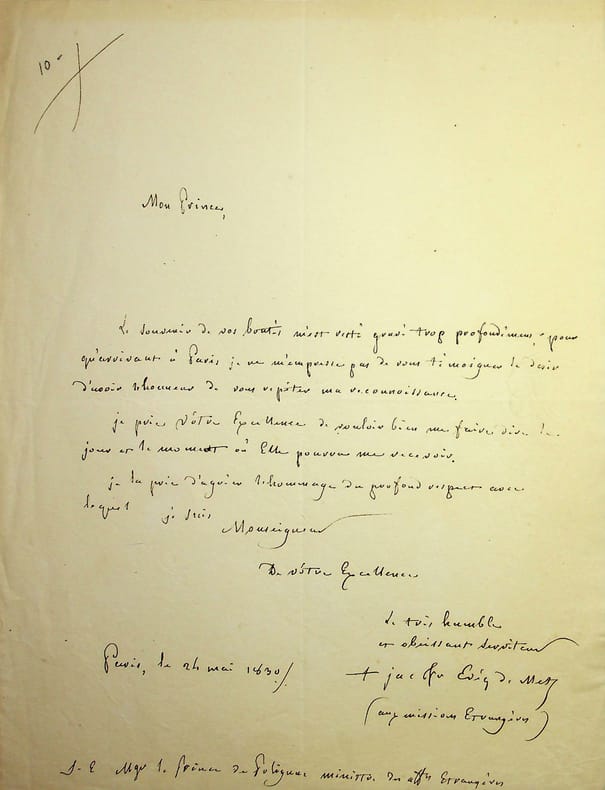 10-
Mon Prince,
Le souvenir de vos bontés m'est resté gravé trop profondément, pour
qu'arrivant à Paris je ne m'empresse pas de vous témoigner le desir
d'avoir l'honneur de vous repéter ma reconnoissance.
je prie Vôtre Excellence de vouloir bien me faire dire le
jour et le moment où Elle pourra me recevoir.
je la prie d'agréer l'hommage du profond respect avec
lequel je suis
Monseigneur
De vôtre Excellence
Le très humble
et obéissant serviteur
Paris, le 24 mai 1830/.
+ jac fr Evêq de Metz
(aux missions Etrangères)
S. E Mgr le prince de Polignac ministre des affes Etrangères